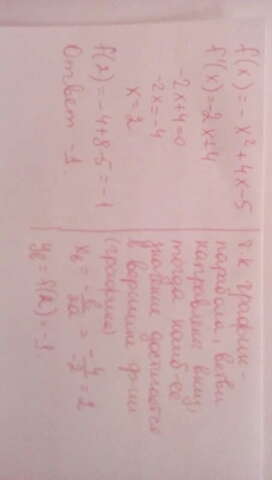 f(x) = -x²+4x-5
f'(x) = 2x+4
-2x+4=0
-2x=-4
x=2
f(2)=-4+8-5=-1
Ответ -1.
т.к график-
парабола, ветви
направлены вниз,
тогда наиб-ее
значение достигается
в вершине ф-ии
(графика)
x₀ = -b/2a = -4/-2 = 2
y₀ = f(2) = -1